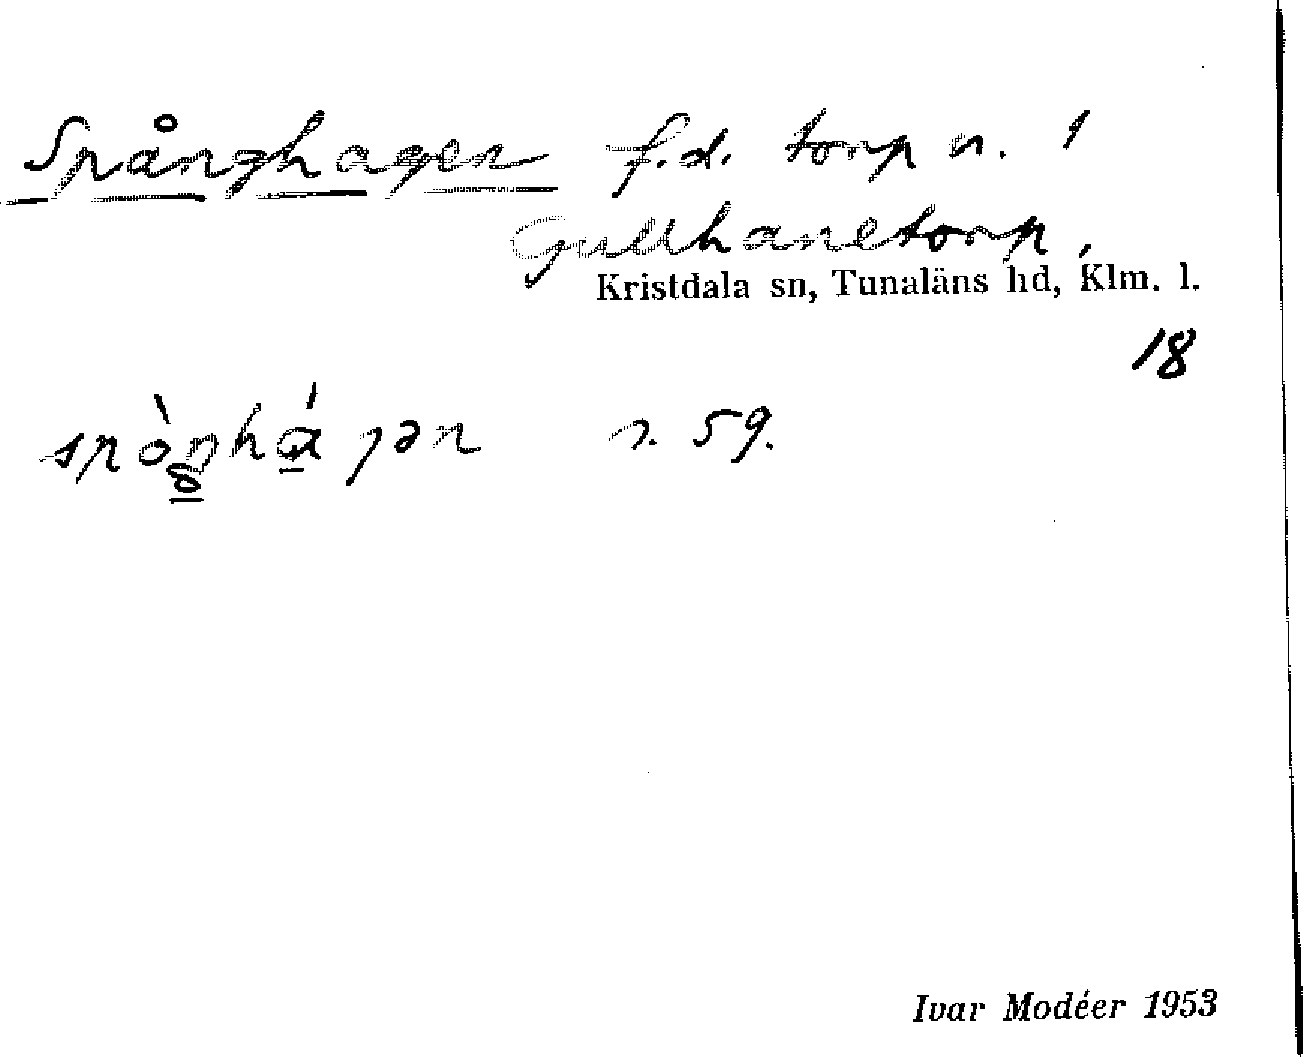 Spånghagen f.d. torp u.
Gullhanetorp,
Kristdala sn, Tunaläns hd, Klm. l.
18
s. 59.
Ivar Modéer 1953